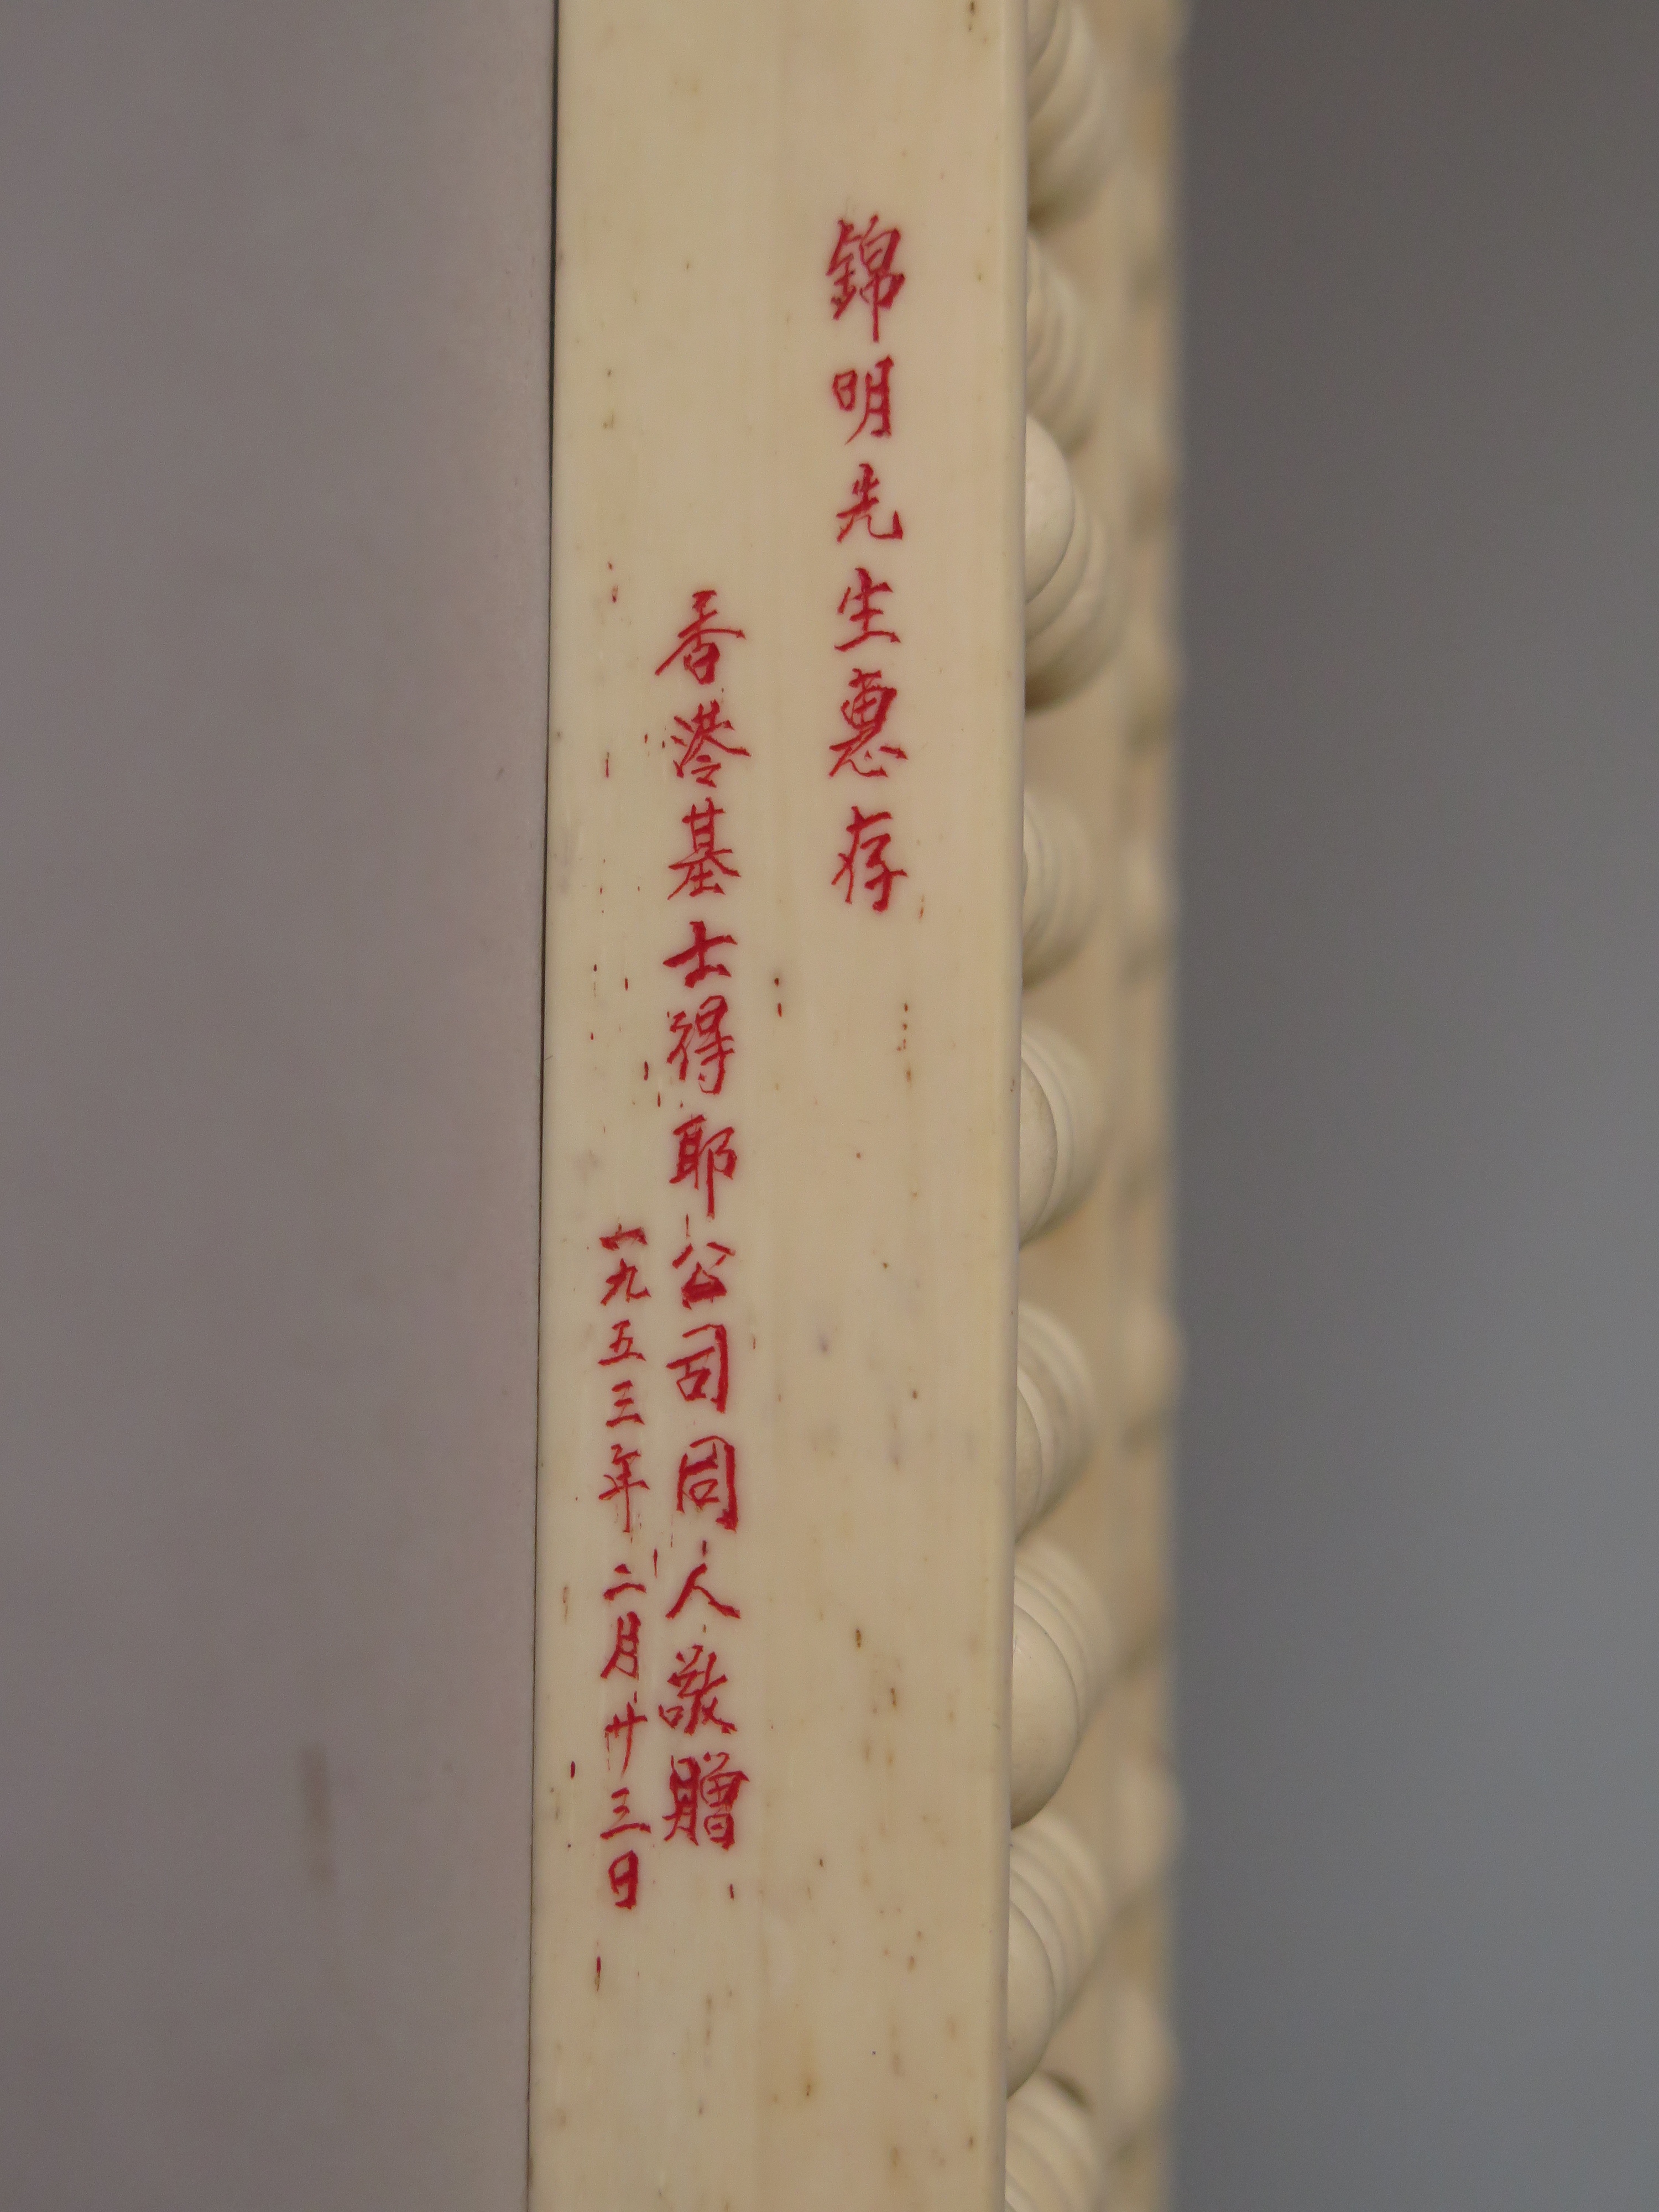 錦明先生惠存
香港基士得耶公司同人敬贈
一九五三年二月廿三日